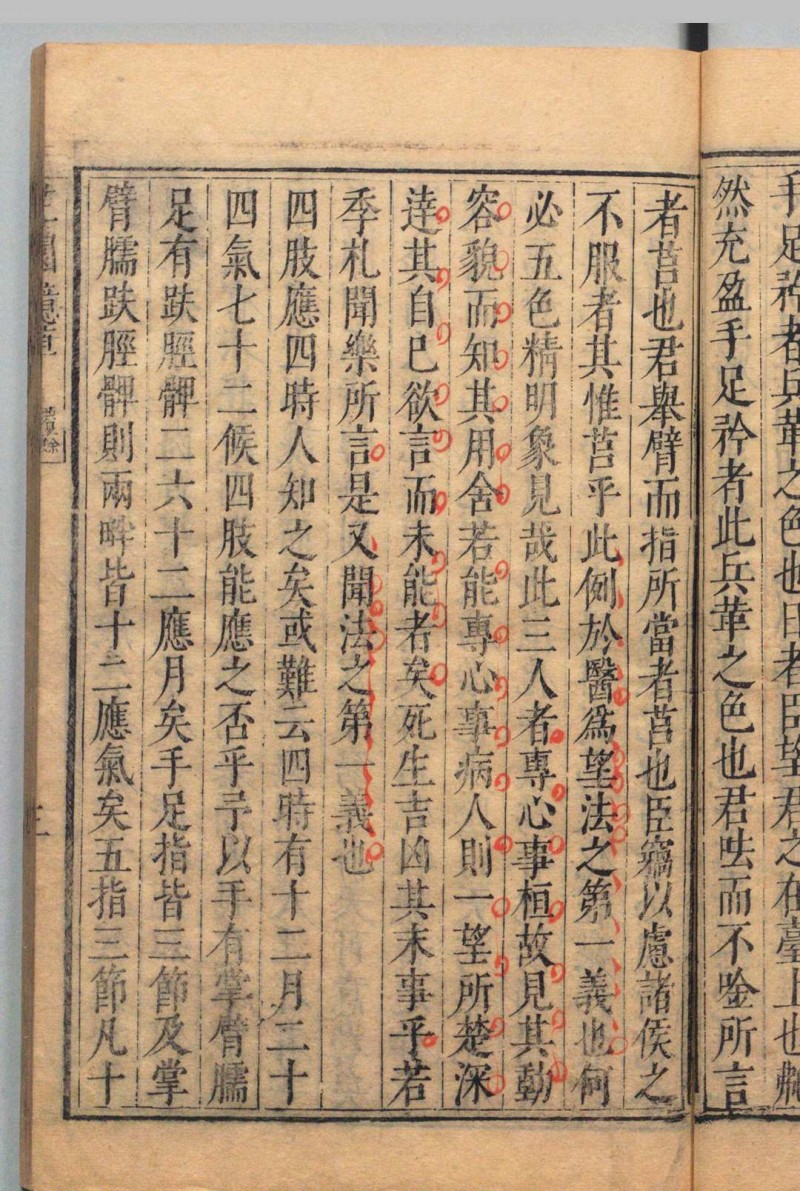 手足矜者兵革之色也日者臣望君之在臺上也艴
然充盈手足矜者此兵革之色也君呿而不唫所言
者莒也君舉臂而指所當者莒也臣竊以慮諸侯之
不服者其惟莒乎此例於醫爲望法之第一義也何
必五色精明象見哉此三人者專心事桓故見其動
容貌而知其用舍若能專心事病人則一望所楚深
達其自已欲言而未能者矣死生吉凶其末事乎若
季札聞樂所言是又聞法之第一義也
四肢應四時人知之矣或難云四時有十二月二十
四氣七十二候四肢能應之否乎予以手有掌臂臑
足有趺脛髀二六十二應月矣手足指皆三節及掌
臂臑趺脛髀則兩畔皆十二應氣矣五指三節凡十
芷園臆草
三